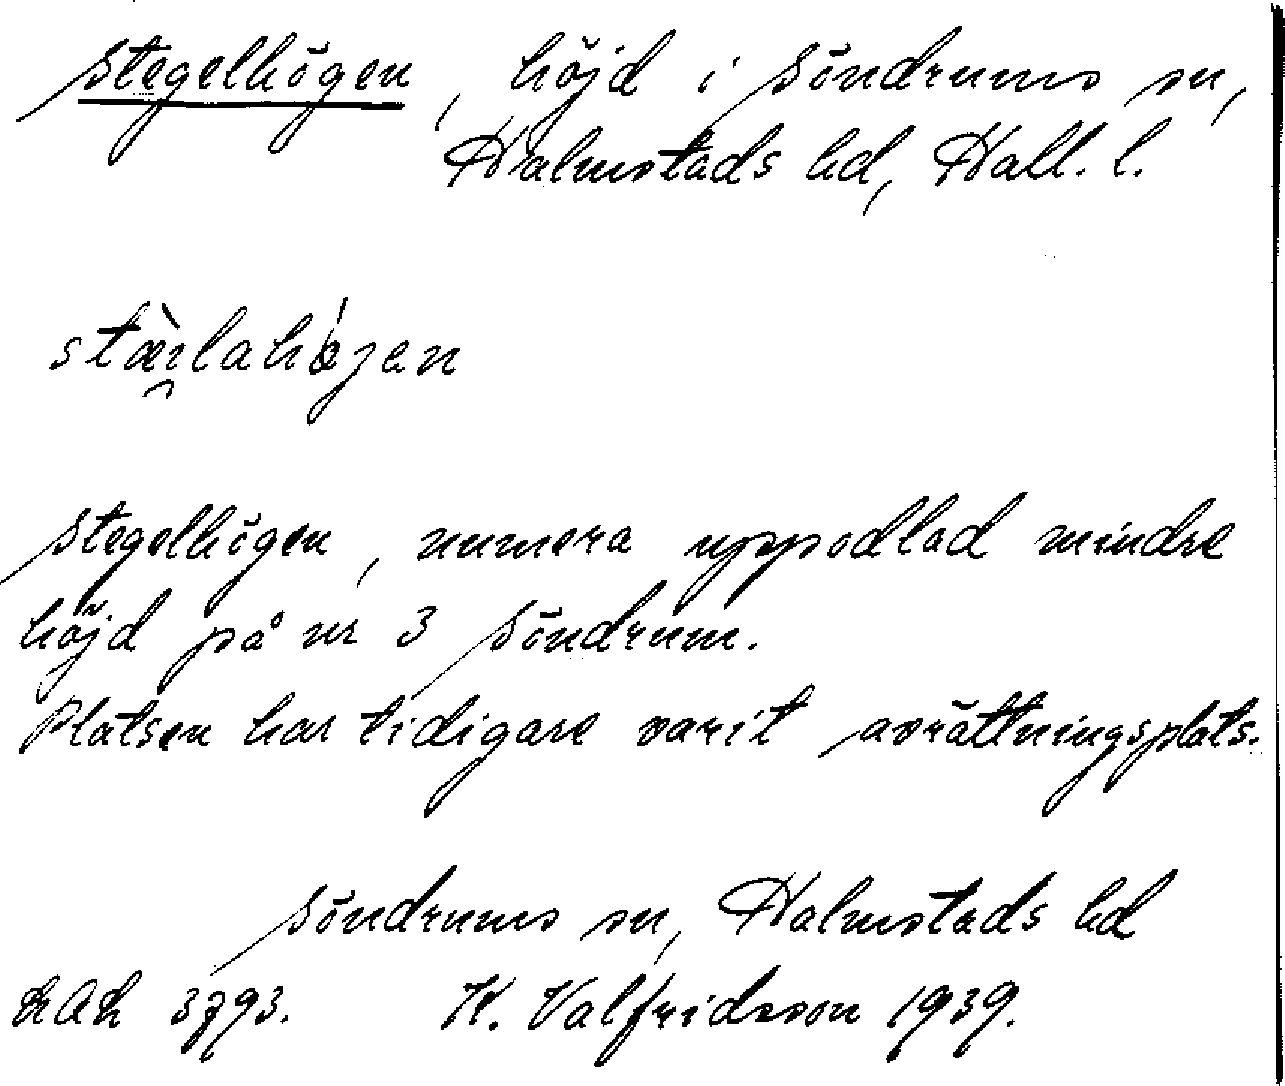 Stegelhögen, höjd i Söndrums sn,
Halmstads hd, Hall. l.
stæ̀i̯lahǿgen
Stegelhögen, numera uppodlad mindre
höjd på nr 3 Söndrum.
Platsen har tidigare varit avrättningsplats.
Söndrums sn, Halmstads hd
3793. K. Valfridsson 1939.